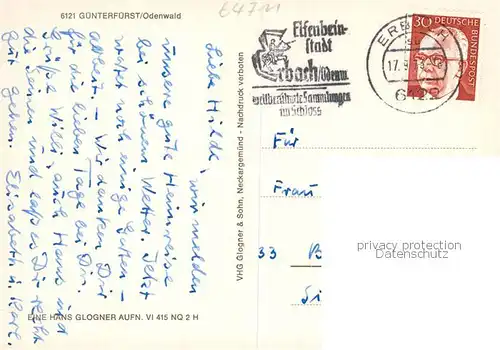 647M
6121 GÜNTERFÜRST/Odenwald
Liebe Hilde, wir melden
unsere gute Heimreise
bei schönem Wetter. Jetzt
wartet noch einige Garten-
arbeit. – Wir danken Dir
für die lieben Tage bei Dir.
Grüße Willi, auch Hans und
die Seinen und laß es Dir recht
gut gehen. Elisabeth u. Karl.
EINE HANS GLOGNER AUFN. VI 415 NQ 2 H
VHG Glogner & Sohn, Neckargemünd - Nachdruck verboten
Elfenbein-
stadt
Erbach/Odenw.
weltberühmte Sammlungen
im Schloss
ERBACH
17.9.
6122
30 DEUTSCHE
BUNDESPOST
Für
Frau
33 B
privacy protection
Datenschutz